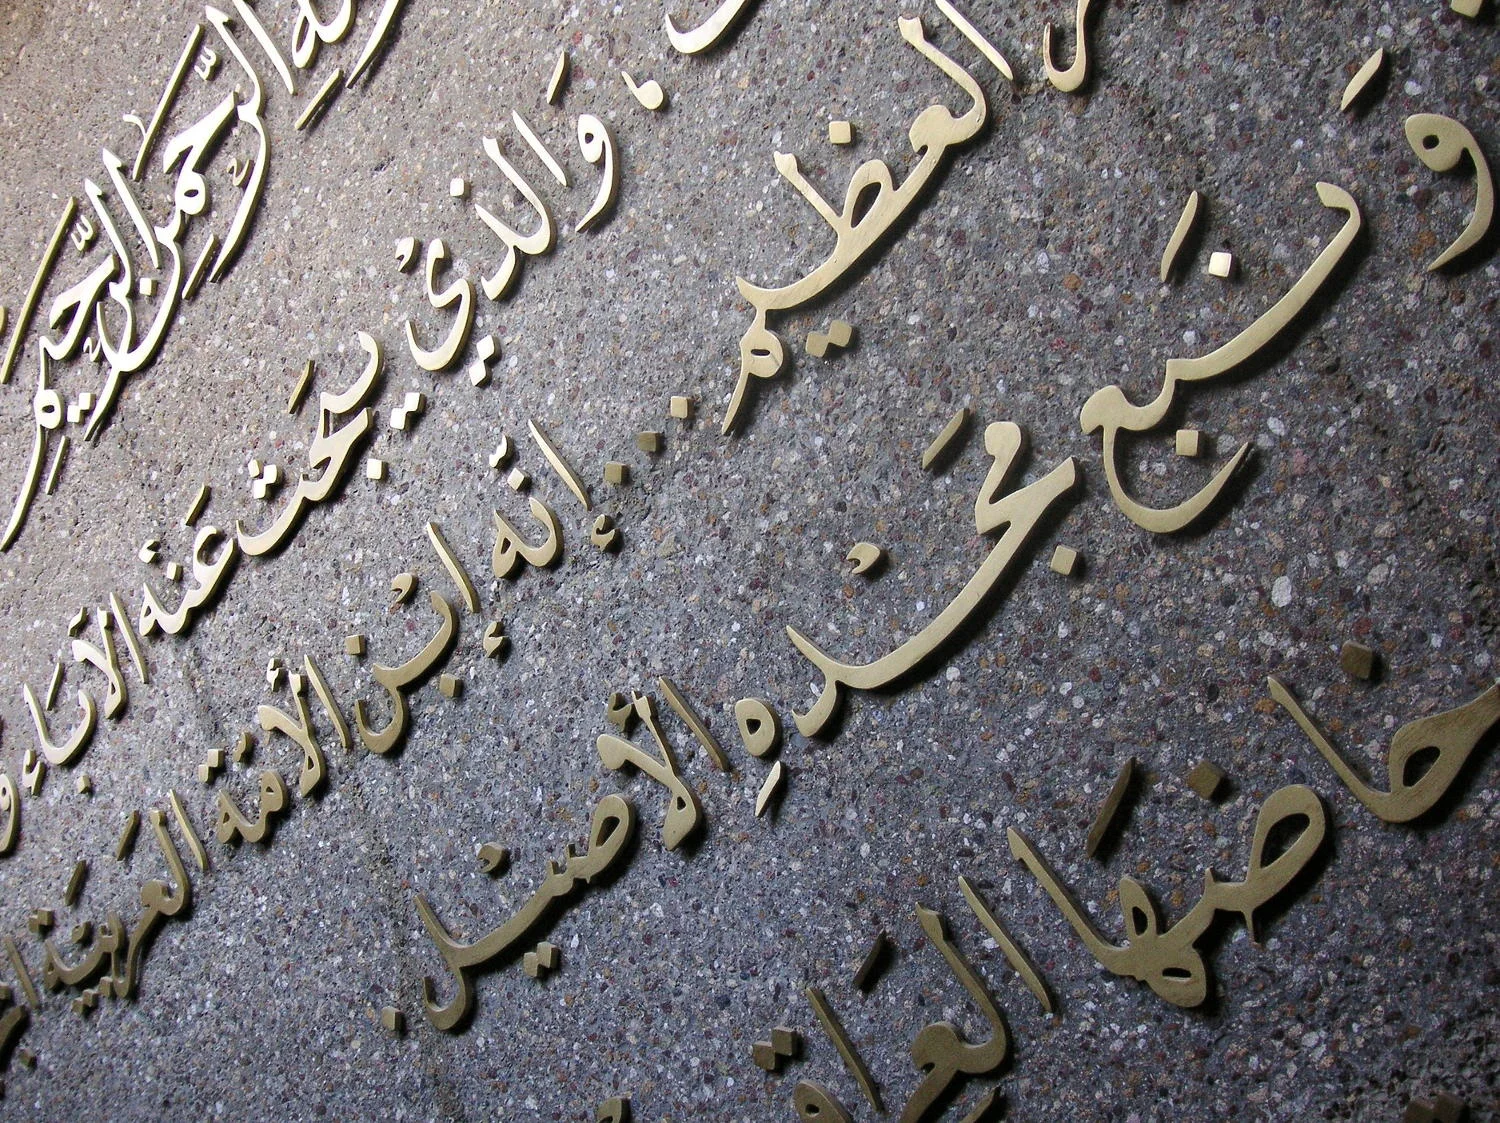 الرَّحمٰنِ الرَّحيمِ
وَالذي يبحَث عَنْه الآبَاء
العَظيم ... إنْه ابْن الأمّة العَربيَّة
وَ نَبع مَجْدهِ الأصيْل.
خاضَها